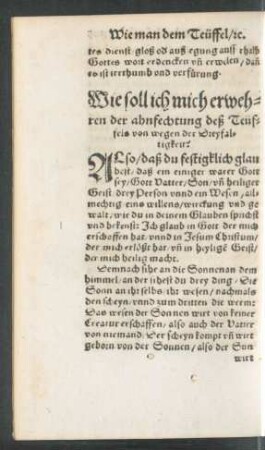 Wie man dem Teüffel/ ꝛc.
tes dienst gloß od auß egung auff rhalb
Gottes wort erdencken vñ erwelen/ dañ
es ist irrthumb vnd verfürung.
Wie soll ich mich erweh-
ren der ahnfechtung deß Teuf-
fels von wegen der Dryfal-
tigkeit?
ALso/ daß du festigklich glau
best/ daß ein einiger warer Gott
sey/ Gott Vatter/ Son/ vñ heiliger
Geist/ drey Person vnnd ein Wesen/ all-
mechtig/ eins willens/ wirckung vnd ge
walt/ wie du in deinem Glauben sprichst
vnd bekenst: Ich glaub in Gott der mich
erschoffen hat/ vnnd in Jesum Christum/
der mich erlößt hat/ vñ in heylige Geist/
der mich heilig macht.
Demnach sihe an die Sonnen an dem
himmel/ an der sihest du drey ding: Die
Sonn an ihr selbs/ ihr wesen/ nachmals
den scheyn/ vnnd zum dritten die werm:
Das wesen der Sonnen wirt von keiner
Creatur erschaffen/ also auch der Vatter
von niemand. Der scheyn kompt vñ wirt
geborn von der Sonnen/ also der Sun
wirt